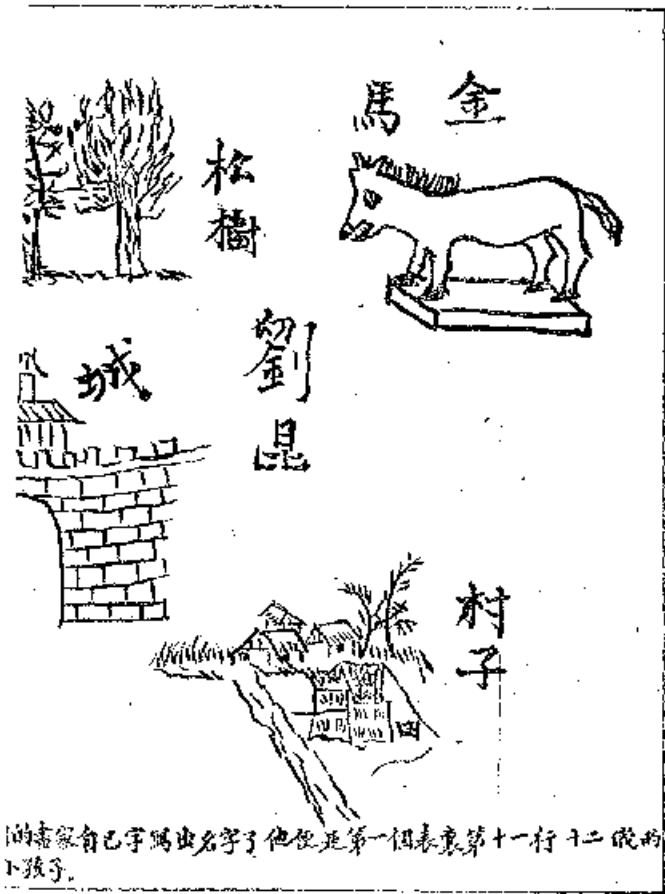 金馬
松樹
城
劉昆
村子
的畫家自己字寫出名字了他便是第一個表裏第十一行十二做的
小孩子。